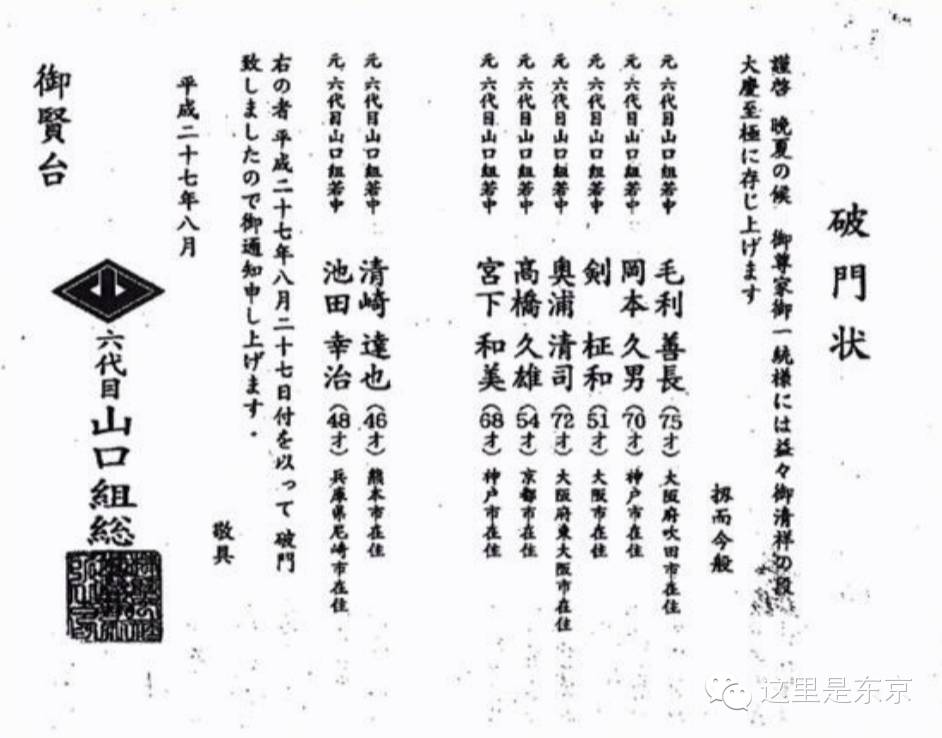 破門状
謹啓 晩夏の候 御尊家御一統様には益々御清祥の段
大慶至極に存じ上げます
扨而今般
元 六代目山口組若中 毛利 善長(75才)大阪府吹田市在住
元 六代目山口組若中 岡本 久男(70才)神戸市在住
元 六代目山口組若中 剣 柾和(51才)大阪市在住
元 六代目山口組若中 奥浦 清司(72才)大阪府東大阪市在住
元 六代目山口組若中 高橋 久雄(54才)京都市在住
元 六代目山口組若中 宮下 和美(68才)神戸市在住
元 六代目山口組若中 清崎 達也(46才)熊本市在住
元 六代目山口組若中 池田 幸治(48才)兵庫県尼崎市在住
右の者 平成二十七年八月二十七日付を以って 破門
致しましたので御通知申し上げます.
敬具
平成二十七年八月
六代目 山口組総
御賢台
这里是东京